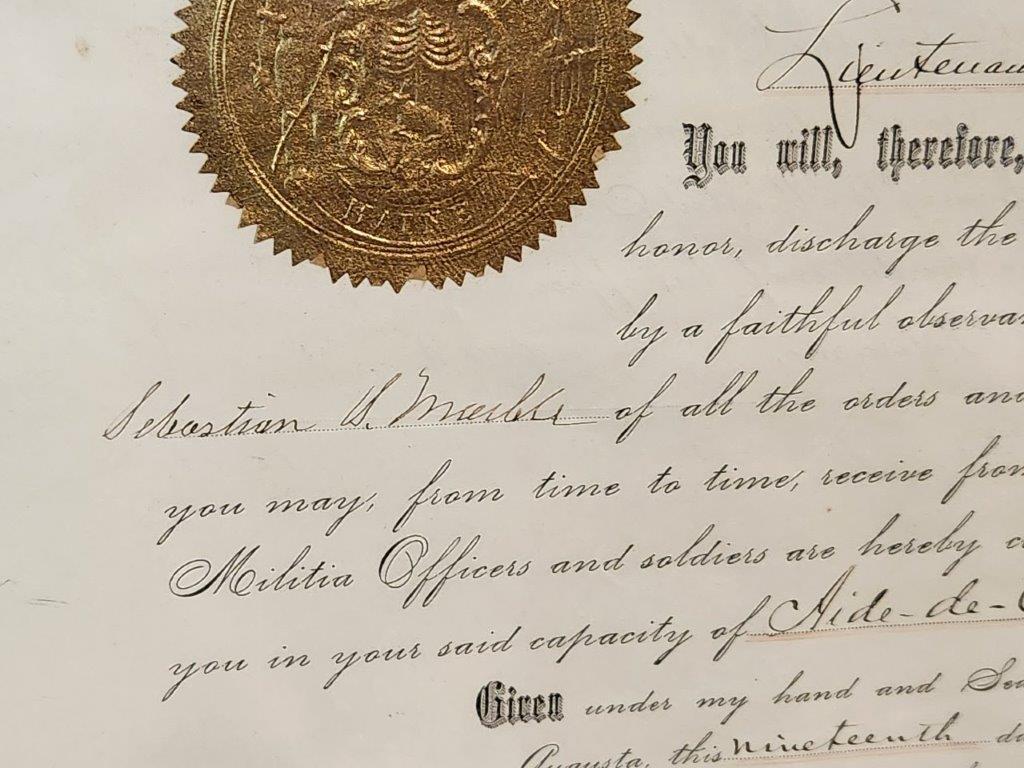 MAINE
Lieutenan
You will, therefore,
honor, discharge the
by a faithful observa
Sebastian S. Marble of all the orders and
you may, from time to time, receive from
Militia Officers and soldiers are hereby c
you in your said capacity of Aide-de-C
Given under my hand and Sea
Augusta, this nineteenth da